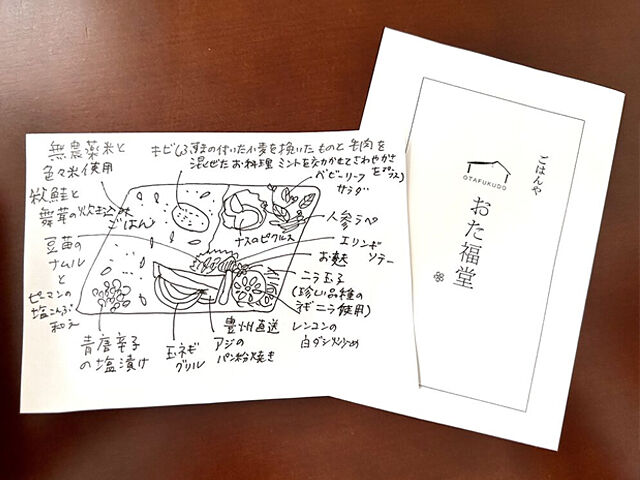 無農薬米と
色々米使用
秋鮭と
舞茸の炊き込み
ごはん
豆苗の
ナムル
と
ピーマンの
塩こんぶ
和え
青唐辛子
の塩漬け
玉ネギ
グリル
豊州直送
アジの
パン粉焼き
キビ(ふすまの付いた小麦を挽いたものと牛肉を
混ぜたお料理 ミントを交かせてさわやかさ
をプラス)
ベビーリーフ
サラダ
人参ラペ
ナスのピクルス
エリンギ
ソテー
お麩
ニラ玉子
(珍しい品種の
ネギニラ使用)
レンコンの
白ダシ炒め
ごはんや
OTAFUKUDO
おた福堂